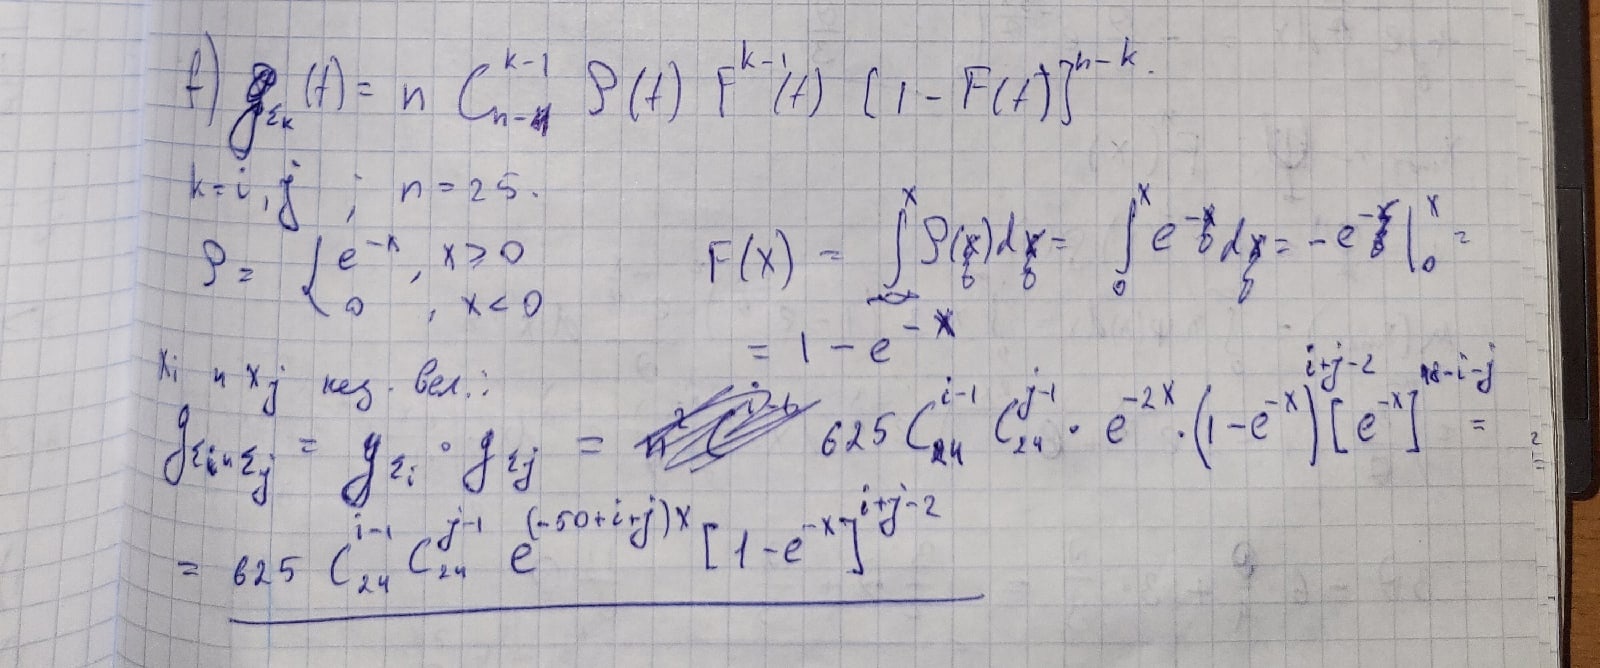 f) g_{ξ_k}(t) = n C_{n-1}^{k-1} ρ(t) F^{k-1}(t) [1 - F(t)]^{n-k}.
k = i, j ; n = 25.
ρ = { e^{-x}, x ≥ 0
0, x < 0
F(x) = ∫_{-∞}^{x} ρ(t) dt = ∫_{0}^{x} e^{-t} dt = -e^{-t} |_{0}^{x} =
= 1 - e^{-x}
x_i и x_j нез. вел.:
g_{ξ_i и ξ_j} = g_{ξ_i} · g_{ξ_j} = 625 C_{24}^{i-1} C_{24}^{j-1} · e^{-2x} · (1 - e^{-x})^{i+j-2} [e^{-x}]^{48-i-j} =
= 625 C_{24}^{i-1} C_{24}^{j-1} e^{(-50+i+j)x} [1 - e^{-x}]^{i+j-2}